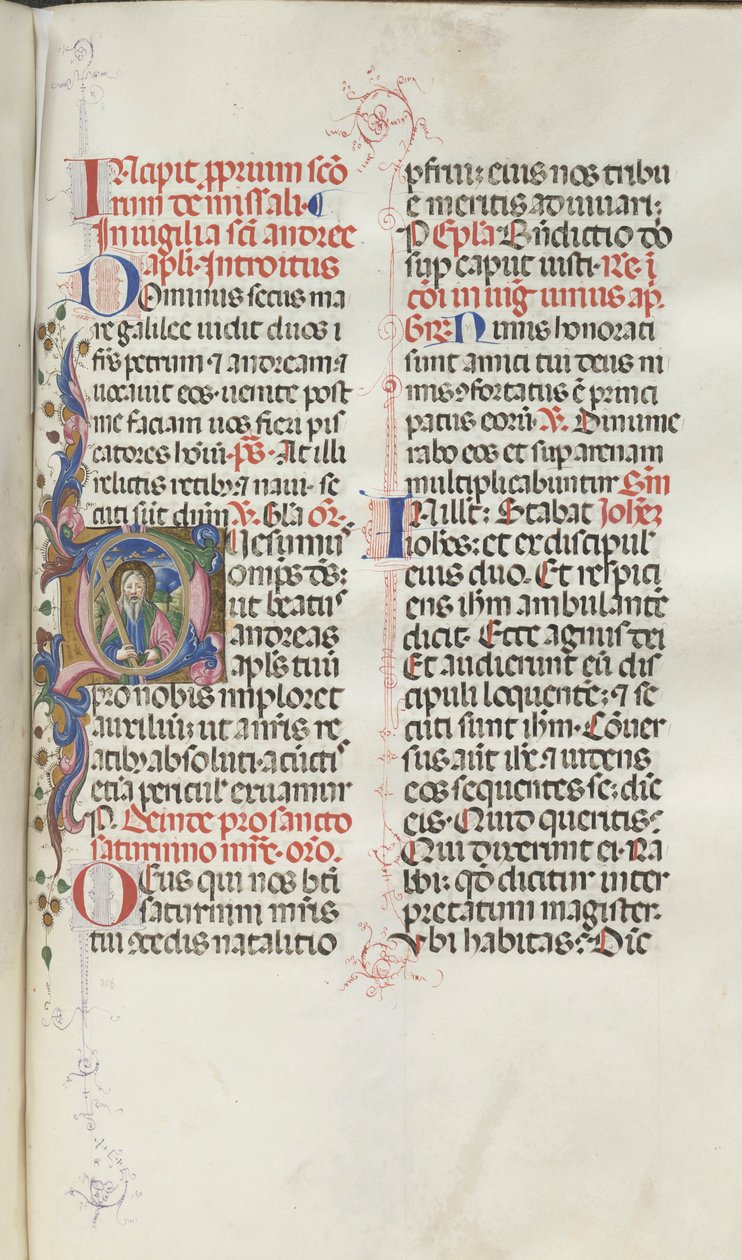 INcipit ꝓprium scō
rum de missali·
In uigilia sc̄i andree
apl̄i·Introitus
DOminus secus ma
re galilee uidit duos i
fr̄s petrum ⁊ andream ⁊
uocauit eos·uenite post
me faciam uos fieri pis
catores hoīm·p̄s·At illi
relictis retibꝫ ⁊ naui·se
cuti sūt dn̄m V̄·Gl̄a or̄·
Quesumus
omp̄s ds̄:
ut beatus
andreas
apl̄s tuus
pro nobis imploret
auxiliū; ut a nr̄is re
atibꝫ absoluti·a cūctis
etiā pericul' eruamur
P· Deinde pro sancto
saturnino mr̄e·oro.
DEus qui nos bt̄i
saturnini mr̄is
tui ꝯcedis natalitio
pfrui; eius nos tribu
e meritis adiuuari;
P Epl̄a Bn̄dictio do
sup caput iusti·Re·ī
cōi in uiḡ unius ap̄.
Gr̄· Nimis honorati
sunt amici tui deus ni
mis ꝯfortatus ē princi
patus eorū· V̄· Dinume
rabo eos et sup arenam
multiplicabuntur Sm̄
IN ill't; Stabat Joh̄ez
ioh̄es: et ex discipul'
eius duo. Et respici
ens ih̄m ambulante
dicit· Ecce agnus dei
Et audierunt eū dis
cipuli loquentē; ⁊ se
cuti sunt ih̄m· Cōuer
sus aūt ih̄c ⁊ uidens
eos sequentes se; dīc
eis· Quid queritis?
Qui dixerunt ei· Ra
bbi: qd̄ dicitur inter
pretatum magister·
Vbi habitas? Dic̄
256